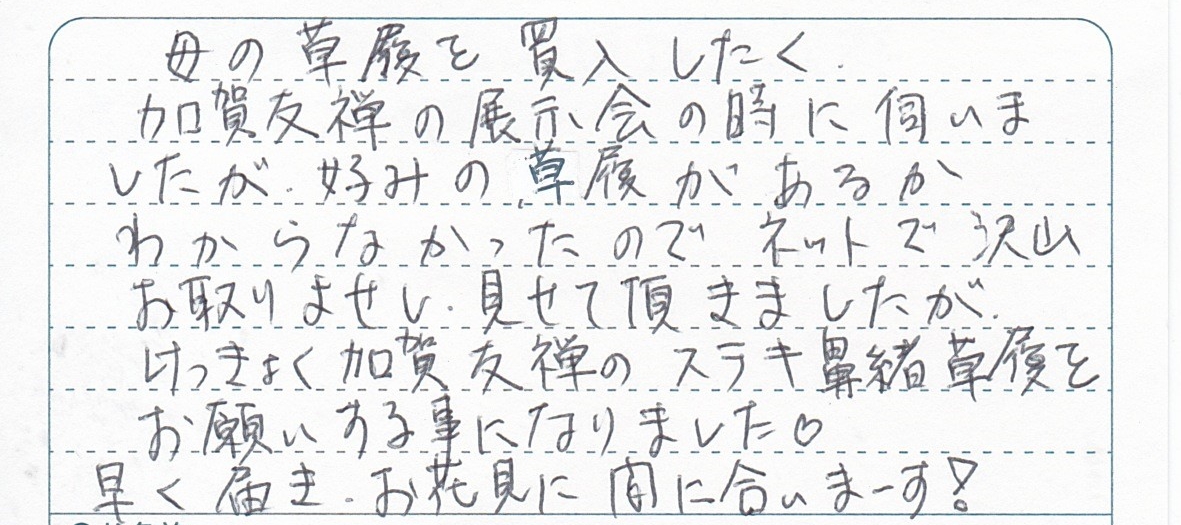 母の草履を買入したく
加賀友禅の展示会の時に伺いま
したが、好みの草履があるか
わからなかったのでネットで沢山
お取りよせし、見せて頂きましたが、
けっきょく加賀友禅のステキ鼻緒草履を
お願いする事になりました♡
早く届き、お花見に間に合いまーす!